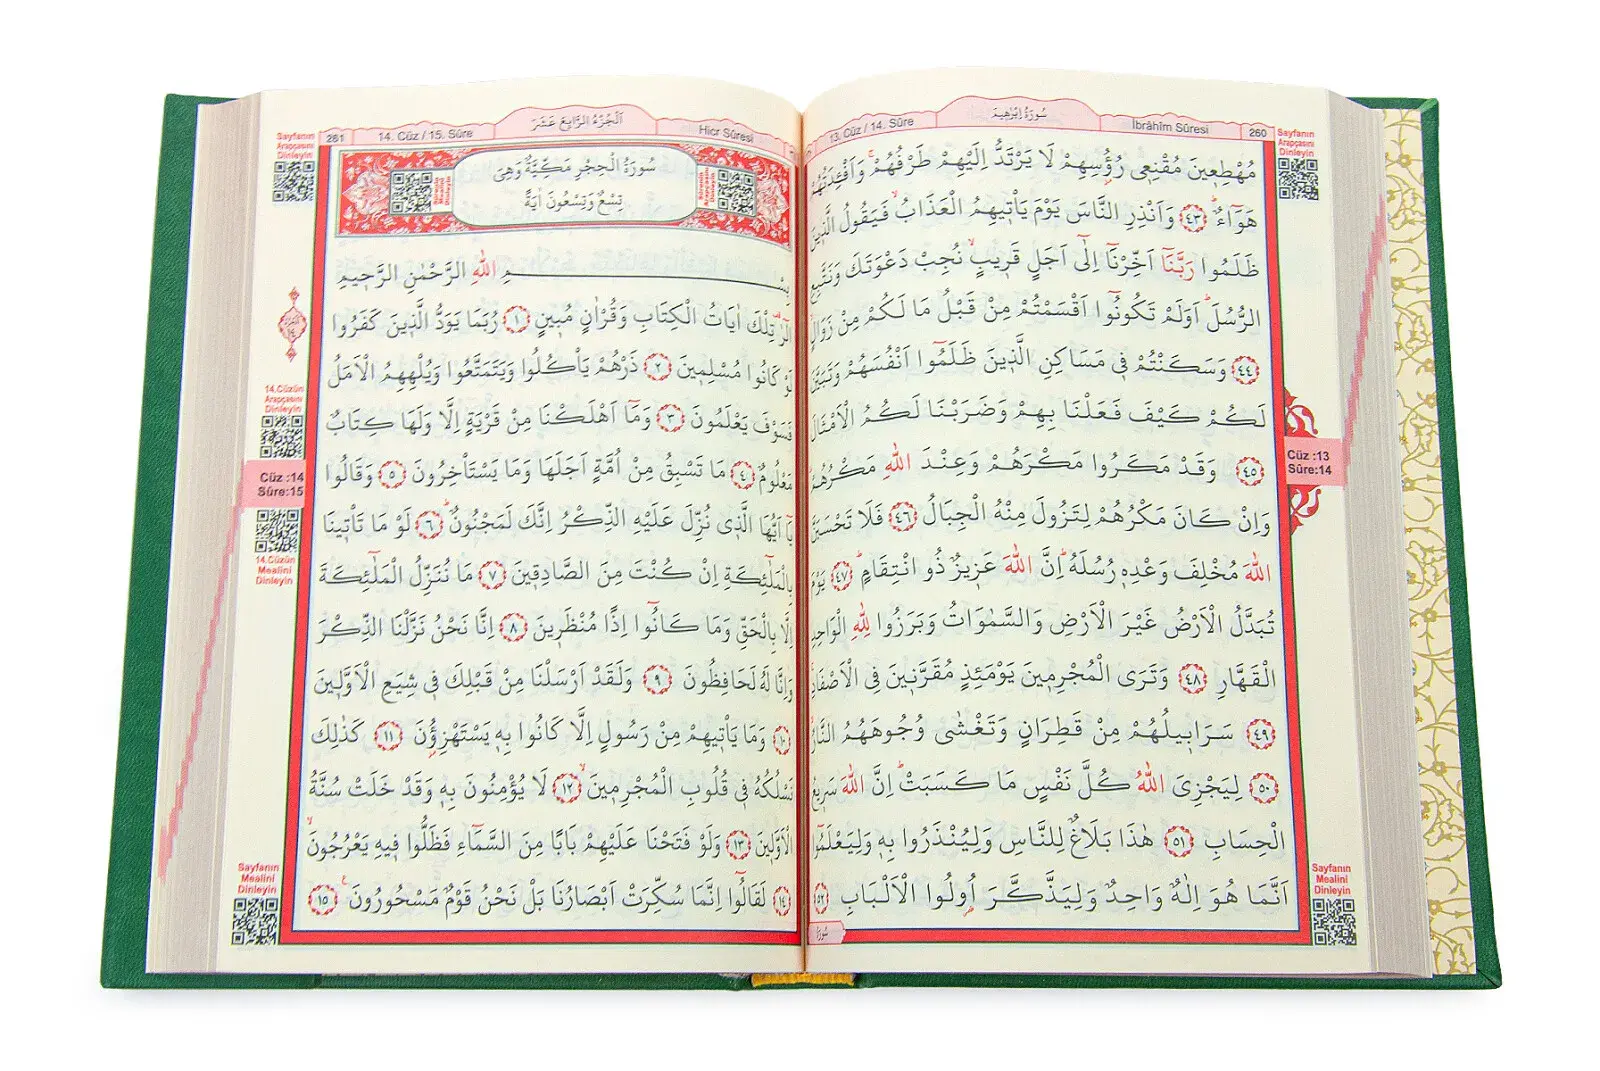 13. Cüz / 14. Sûre
سُورَةُ اِبْرٰهِيمَ
İbrâhîm Sûresi
260
Sayfanın
Arapçasını
Dinleyin
مُهْطِع۪ينَ مُقْنِع۪ي رُؤُسِهِمْ لَا يَرْتَدُّ اِلَيْهِمْ طَرْفُهُمْۚ وَاَفْـِٔدَتُهُمْ
هَوَٓاءٌۜ ﴿٤٣﴾ وَاَنْذِرِ النَّاسَ يَوْمَ يَأْت۪يهِمُ الْعَذَابُ فَيَقُولُ الَّذ۪ينَ
ظَلَمُوا رَبَّنَٓا اَخِّرْنَٓا اِلٰٓى اَجَلٍ قَر۪يبٍۙ نُجِبْ دَعْوَتَكَ وَنَتَّبِعِ
الرُّسُلَۜ اَوَلَمْ تَكُونُٓوا اَقْسَمْتُمْ مِنْ قَبْلُ مَا لَكُمْ مِنْ زَوَالٍ
﴿٤٤﴾ وَسَكَنْتُمْ ف۪ي مَسَاكِنِ الَّذ۪ينَ ظَلَمُٓوا اَنْفُسَهُمْ وَتَبَيَّنَ
لَكُمْ كَيْفَ فَعَلْنَا بِهِمْ وَضَرَبْنَا لَكُمُ الْاَمْثَالَ
﴿٤٥﴾ وَقَدْ مَكَرُوا مَكْرَهُمْ وَعِنْدَ اللّٰهِ مَكْرُهُمْۜ
وَاِنْ كَانَ مَكْرُهُمْ لِتَزُولَ مِنْهُ الْجِبَالُ ﴿٤٦﴾ فَلَا تَحْسَبَنَّ
اللّٰهَ مُخْلِفَ وَعْدِه۪ رُسُلَهُۜ اِنَّ اللّٰهَ عَز۪يزٌ ذُو انْتِقَامٍۜ ﴿٤٧﴾ يَوْمَ
تُبَدَّلُ الْاَرْضُ غَيْرَ الْاَرْضِ وَالسَّمٰوَاتُ وَبَرَزُوا لِلّٰهِ الْوَاحِدِ
الْقَهَّارِ ﴿٤٨﴾ وَتَرَى الْمُجْرِم۪ينَ يَوْمَئِذٍ مُقَرَّن۪ينَ فِي الْاَصْفَادِۚ
﴿٤٩﴾ سَرَاب۪يلُهُمْ مِنْ قَطِرَانٍ وَتَغْشٰى وُجُوهَهُمُ النَّارُۙ
﴿٥٠﴾ لِيَجْزِيَ اللّٰهُ كُلَّ نَفْسٍ مَا كَسَبَتْۜ اِنَّ اللّٰهَ سَر۪يعُ
الْحِسَابِ ﴿٥١﴾ هٰذَا بَلَاغٌ لِلنَّاسِ وَلِيُنْذَرُوا بِه۪ وَلِيَعْلَمُٓوا
اَنَّمَا هُوَ اِلٰهٌ وَاحِدٌ وَلِيَذَّكَّرَ اُو۬لُوا الْاَلْبَابِ ﴿٥٢﴾
Cüz :13
Sûre:14
Sayfanın
Mealini
Dinleyin
سُورَةُ
281
14. Cüz / 15. Sûre
اَلْجُزْءُ الرَّابِعَ عَشَرَ
Hicr Sûresi
Sayfanın
Arapçasını
Dinleyin
سُورَةُ الْحِجْرِ مَكِّيَّةٌ وَهِيَ
تِسْعٌ وَتِسْعُونَ اٰيَةً
بِسْمِ اللّٰهِ الرَّحْمٰنِ الرَّح۪يمِ
الٓرٰ۠ تِلْكَ اٰيَاتُ الْكِتَابِ وَقُرْاٰنٍ مُب۪ينٍ ﴿١﴾ رُبَمَا يَوَدُّ الَّذ۪ينَ كَفَرُوا
لَوْ كَانُوا مُسْلِم۪ينَ ﴿٢﴾ ذَرْهُمْ يَأْكُلُوا وَيَتَمَتَّعُوا وَيُلْهِهِمُ الْاَمَلُ
فَسَوْفَ يَعْلَمُونَ ﴿٣﴾ وَمَٓا اَهْلَكْنَا مِنْ قَرْيَةٍ اِلَّا وَلَهَا كِتَابٌ
مَعْلُومٌ ﴿٤﴾ مَا تَسْبِقُ مِنْ اُمَّةٍ اَجَلَهَا وَمَا يَسْتَأْخِرُونَ ﴿٥﴾ وَقَالُوا
يَٓا اَيُّهَا الَّذ۪ي نُزِّلَ عَلَيْهِ الذِّكْرُ اِنَّكَ لَمَجْنُونٌۜ ﴿٦﴾ لَوْ مَا تَأْت۪ينَا
بِالْمَلٰٓئِكَةِ اِنْ كُنْتَ مِنَ الصَّادِق۪ينَ ﴿٧﴾ مَا نُنَزِّلُ الْمَلٰٓئِكَةَ
اِلَّا بِالْحَقِّ وَمَا كَانُٓوا اِذًا مُنْظَر۪ينَ ﴿٨﴾ اِنَّا نَحْنُ نَزَّلْنَا الذِّكْرَ
وَاِنَّا لَهُ لَحَافِظُونَ ﴿٩﴾ وَلَقَدْ اَرْسَلْنَا مِنْ قَبْلِكَ ف۪ي شِيَعِ الْاَوَّل۪ينَ
﴿١٠﴾ وَمَا يَأْت۪يهِمْ مِنْ رَسُولٍ اِلَّا كَانُوا بِه۪ يَسْتَهْزِؤُ۫نَ ﴿١١﴾ كَذٰلِكَ
نَسْلُكُهُ ف۪ي قُلُوبِ الْمُجْرِم۪ينَۙ ﴿١٢﴾ لَا يُؤْمِنُونَ بِه۪ وَقَدْ خَلَتْ سُنَّةُ
الْاَوَّل۪ينَ ﴿١٣﴾ وَلَوْ فَتَحْنَا عَلَيْهِمْ بَابًا مِنَ السَّمَٓاءِ فَظَلُّوا ف۪يهِ يَعْرُجُونَۙ
﴿١٤﴾ لَقَالُٓوا اِنَّمَا سُكِّرَتْ اَبْصَارُنَا بَلْ نَحْنُ قَوْمٌ مَسْحُورُونَ۟ ﴿١٥﴾
14.Cüzün
Arapçasını
Dinleyin
Cüz :14
Sûre:15
14.Cüzün
Mealini
Dinleyin
Sayfanın
Mealini
Dinleyin